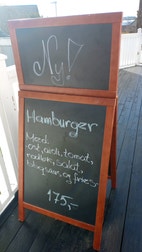 Ny!
Hamburger
Med:
ost, avik, tomat,
rødløk, Salat,
og fries
175,-